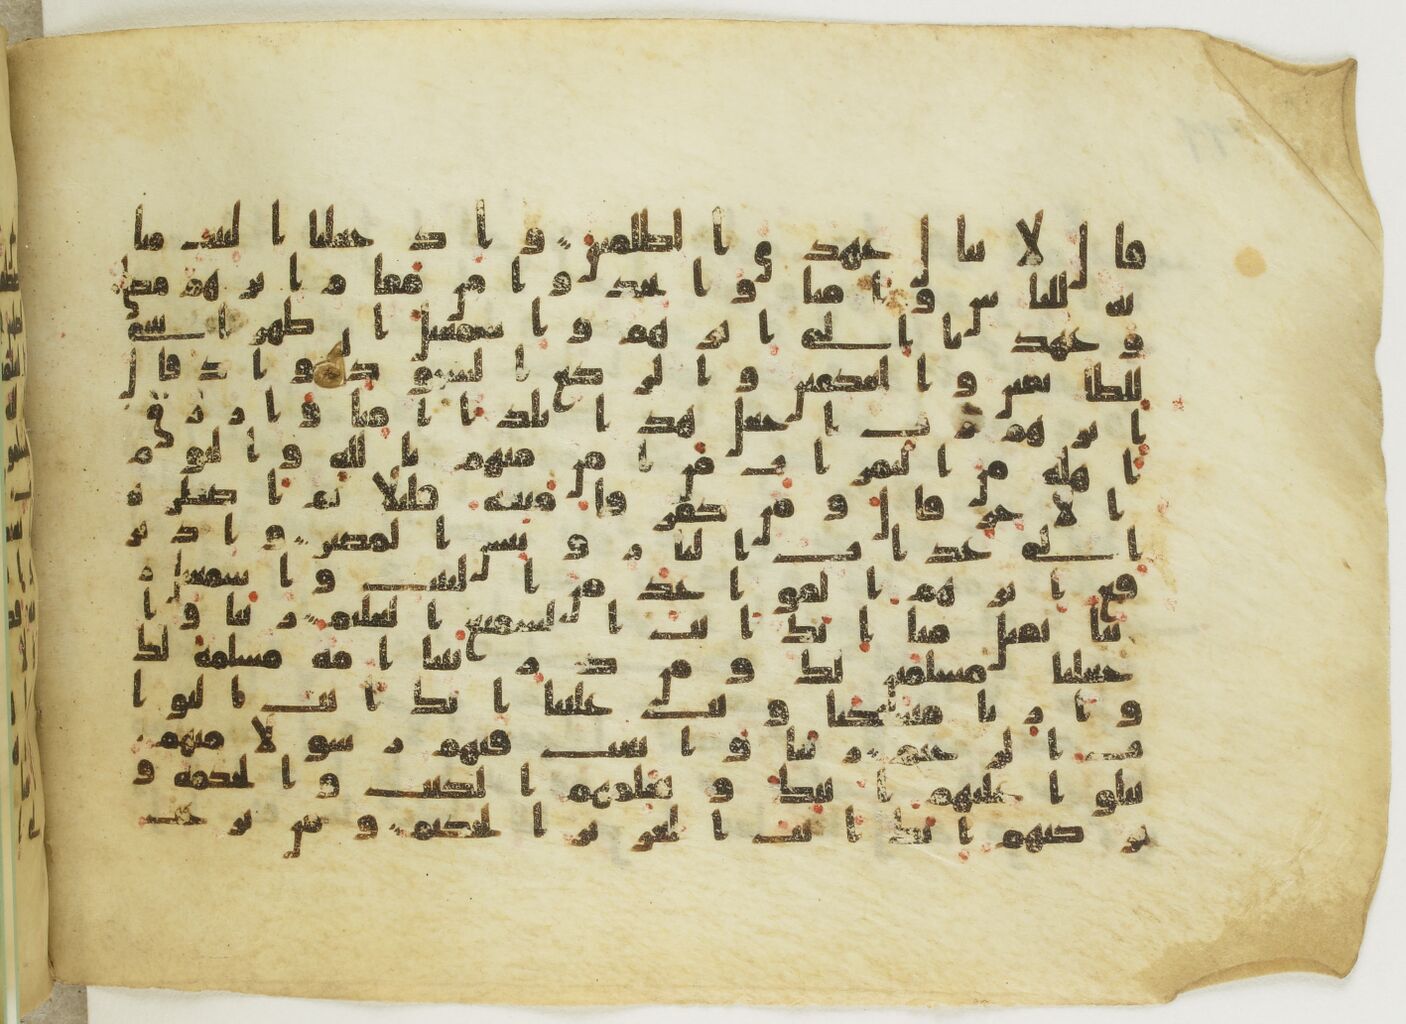 قال لا ينال عهدي الظلمين واذ جعلنا البيت مثا
بة للناس وامنا واتخذوا من مقام ابرهم مصلى
وعهدنا الى ابرهم واسمعيل ان طهرا بيتي
للطائفين والعكفين والركع السجود واذ قال
ابرهم رب اجعل هذا بلدا امنا وارزق
اهله من الثمرت من امن منهم بالله واليوم
الاخر قال ومن كفر فامتعه قليلا ثم اضطره
الى عذاب النار وبئس المصير واذ ير
فع ابرهم القوعد من البيت واسمعيل ر
بنا تقبل منا انك انت السميع العليم ربنا وا
جعلنا مسلمين لك ومن ذريتنا امة مسلمة لك
وارنا مناسكنا وتب علينا انك انت التوا
ب الرحيم ربنا وابعث فيهم رسولا منهم
يتلوا عليهم ايتك ويعلمهم الكتب والحكمة و
يزكيهم انك انت العزيز الحكيم ومن يرغب